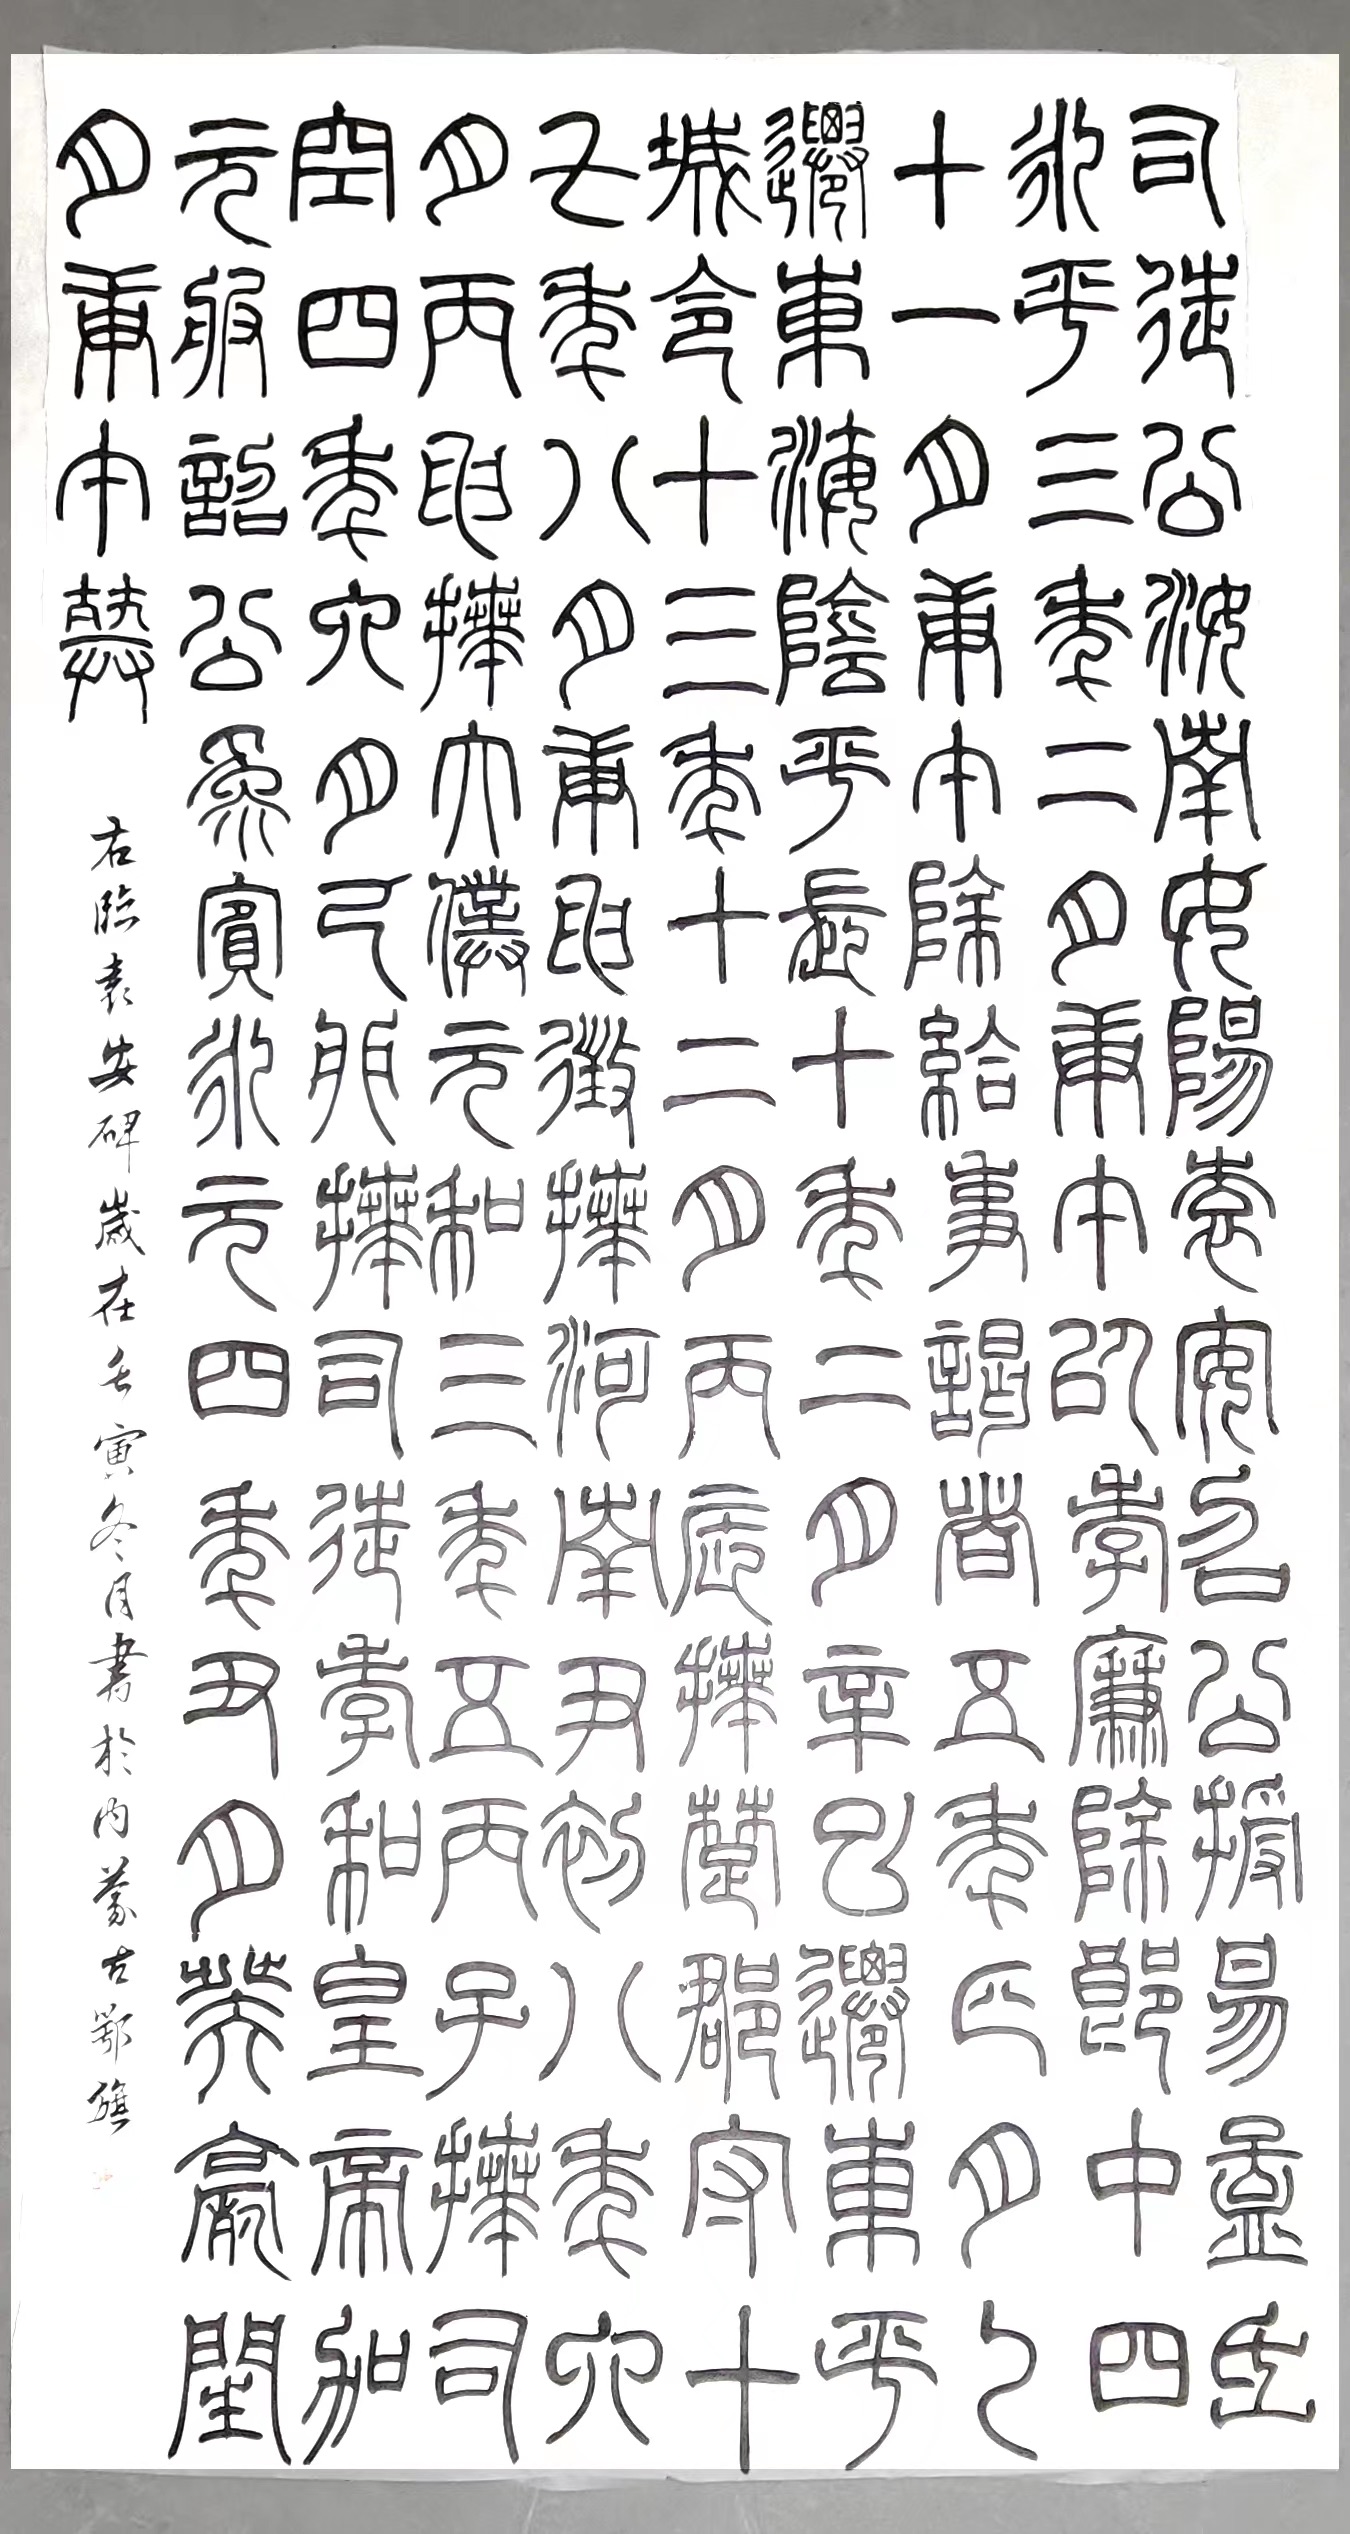 司徒公汝南女陽袁安召公授易孟氏
永平三年二月庚午以孝廉除郎中四
十一月庚午除給事謁者五年正月乙
遷東海陰平長十年二月辛巳遷東平
城令十三年十二月丙辰拜楚郡守十
七年八月庚申徵拜河南尹初八年六
月丙申拜太僕元和三年五丙子拜司
空四年六月己卯拜司徒孝和皇帝加
元服詔公為賓永元四年丑月癸薨閏
月庚午葬
右臨袁安碑歲在壬寅冬月書於內蒙古鄂旗